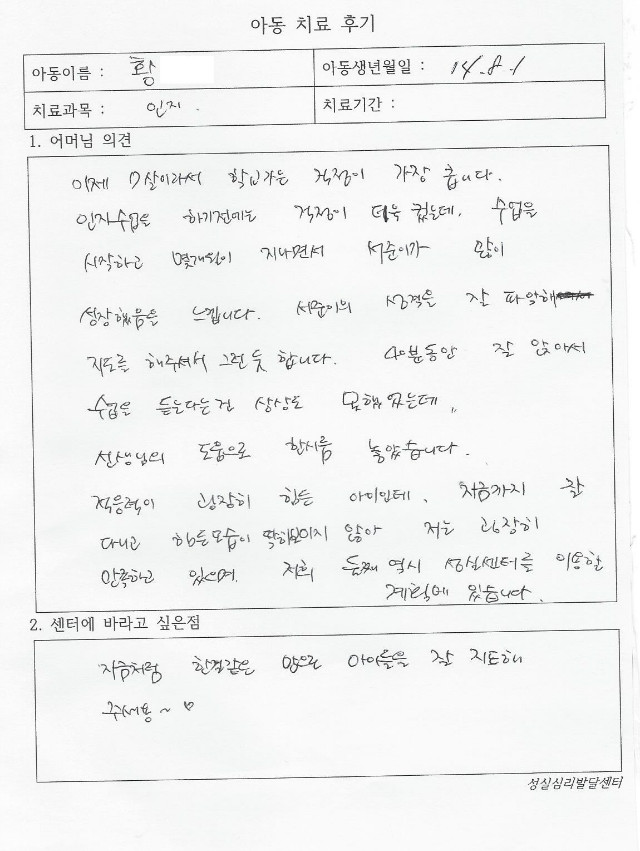 아동 치료 후기
아동이름 : 황
아동생년월일 : 14. 8. 1
치료과목 : 인지.
치료기간 :
1. 어머님 의견
이제 7살이라서 학교가는 걱정이 가장 큽니다.
인지수업을 하기전에는 걱정이 더욱 컸는데. 수업을
시작하고 몇개월이 지나면서 서준이가 많이
성장했음을 느낍니다. 서준이의 성격을 잘 파악해
지도를 해주셔서 그런 듯 합니다. 40분동안 잘 앉아서
수업을 듣는다는건 상상도 못했었는데,,
선생님의 도움으로 한시름 놓았습니다.
적응력이 굉장히 힘든 아이인데, 지금까지 잘
다니고 힘든모습이 딱히보이지 않아 저는 굉장히
만족하고 있으며. 저희 둘째 역시 성실센터를 이용할
계획에 있습니다.
2. 센터에 바라고 싶은점
지금처럼 한결같은 맘으로 아이들을 잘 지도해
주세용~ ♡
성실심리발달센터